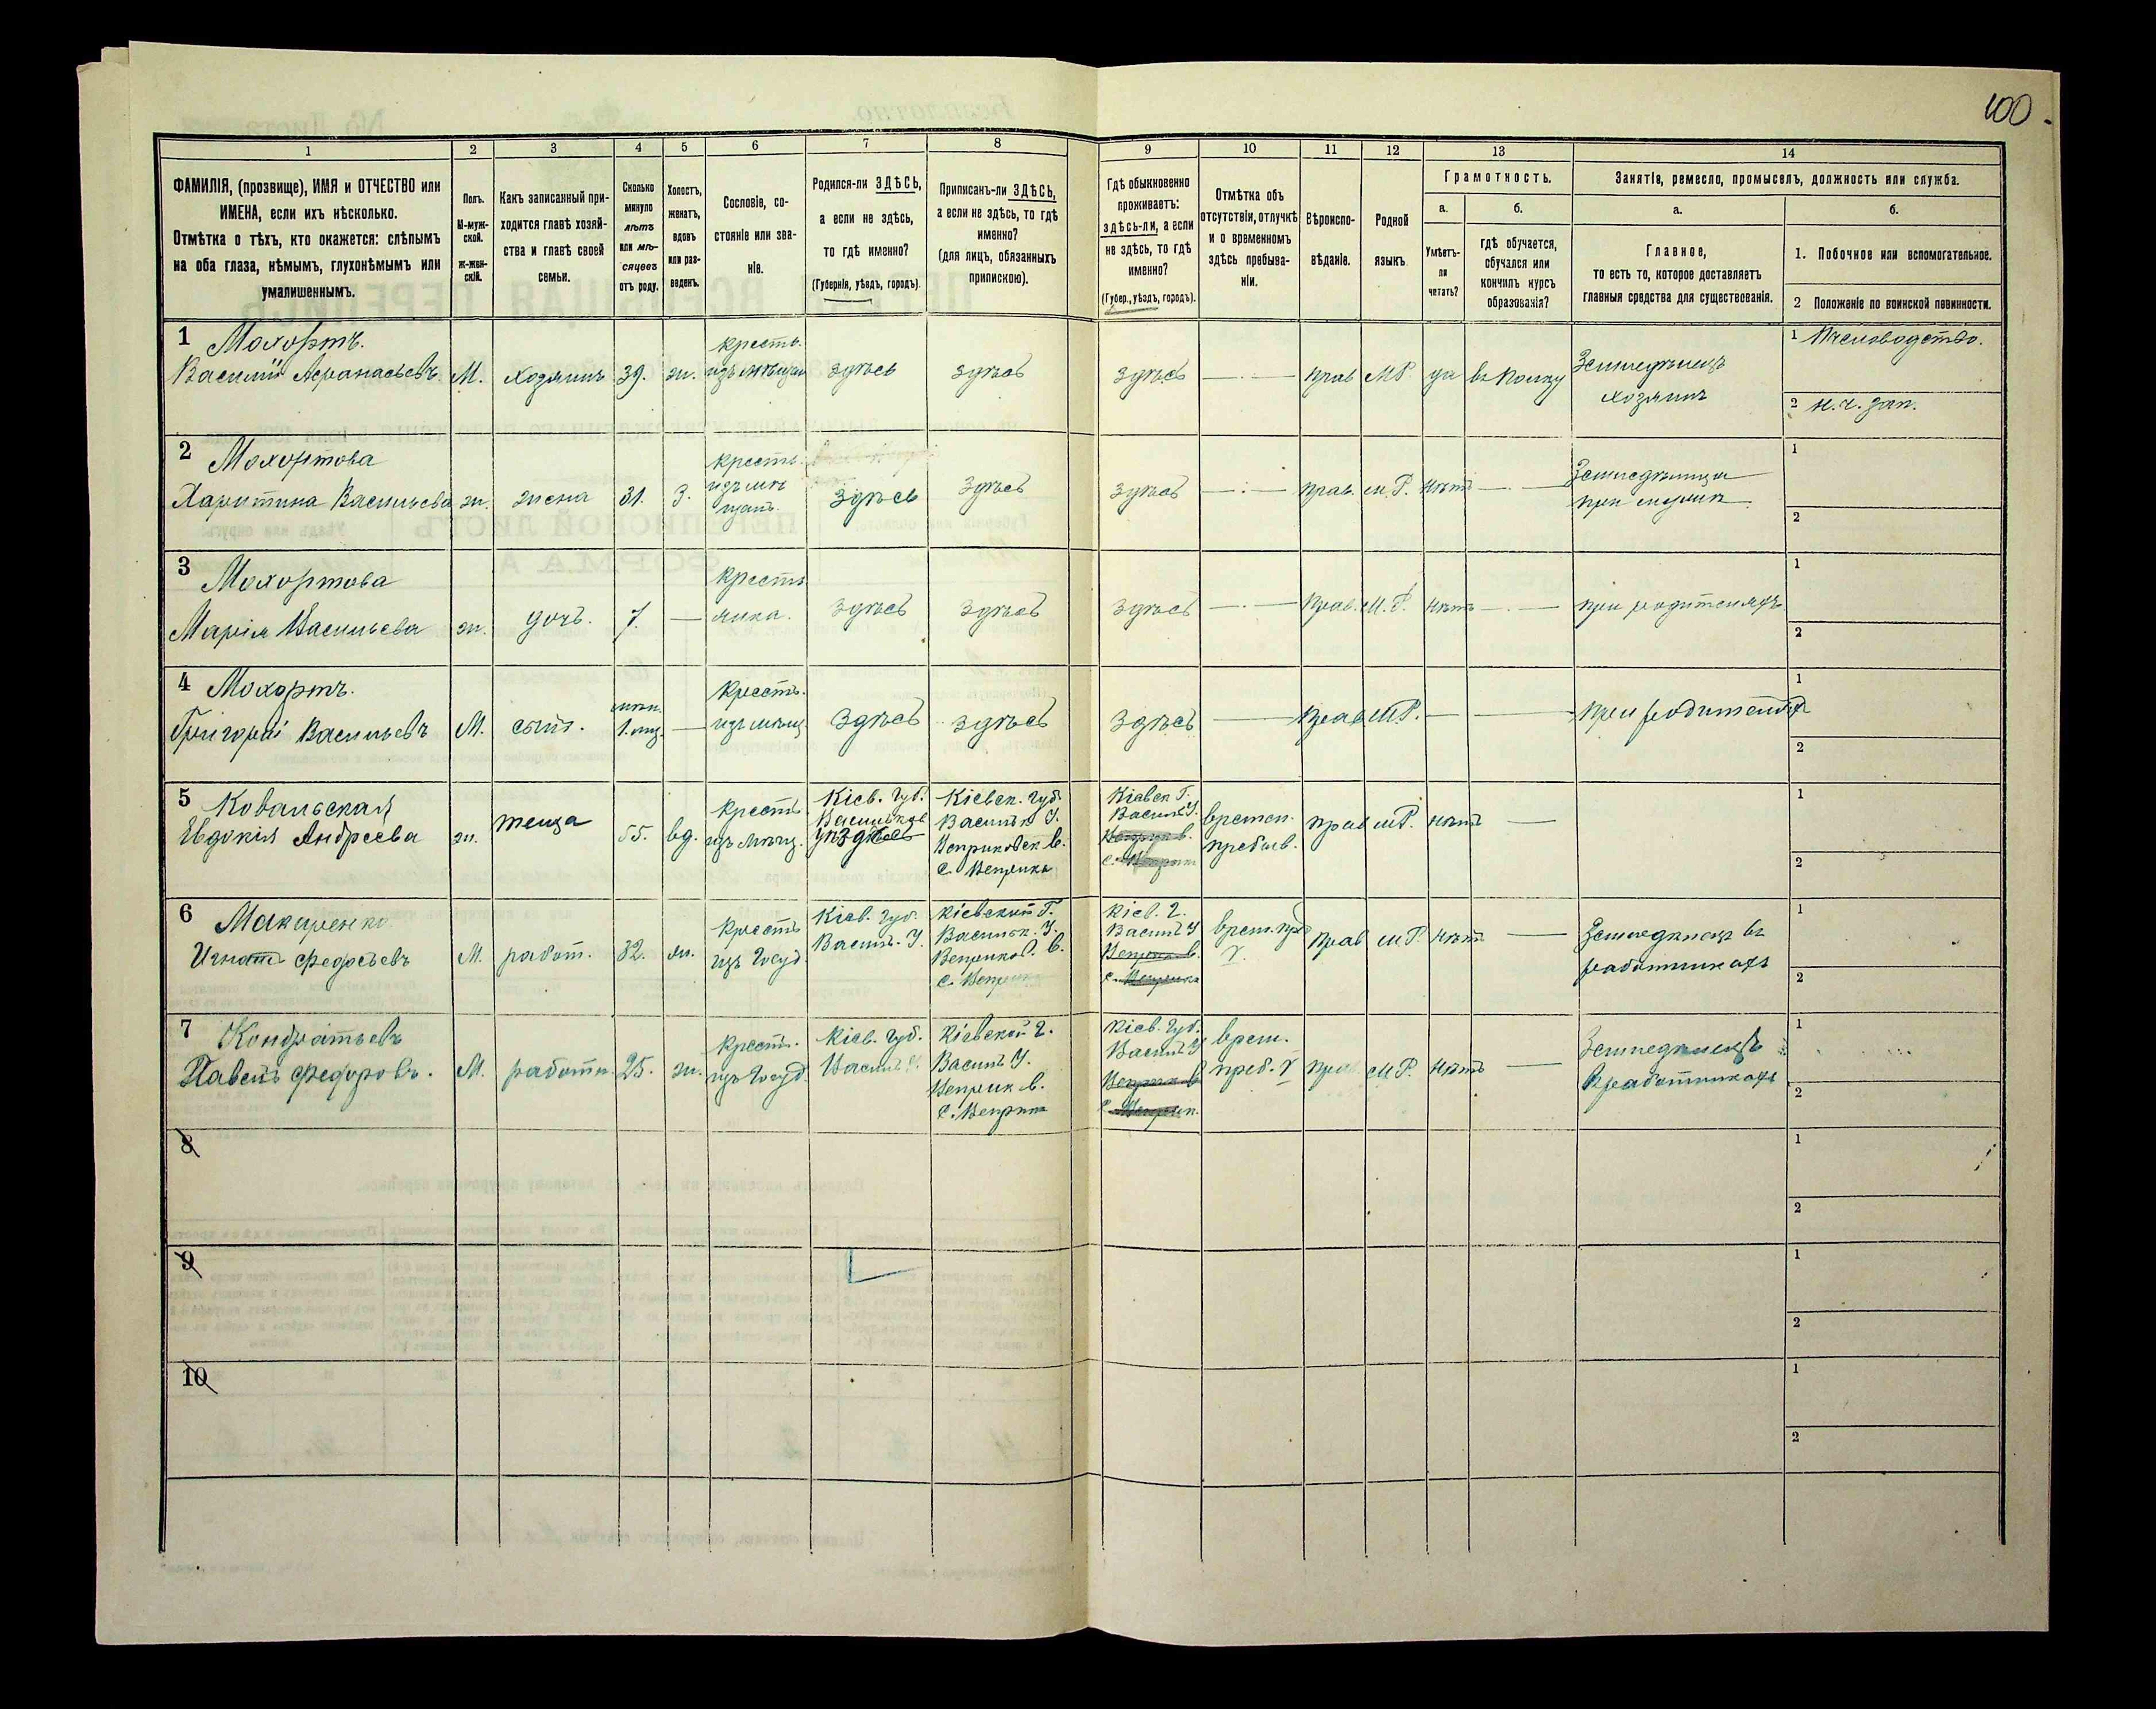 100.
1 2 3 4 5 6 7 8 9 10 11 12 13 14
ФАМИЛІЯ, (прозвище), ИМЯ и ОТЧЕСТВО или
ИМЕНА, если ихъ нѣсколько.
Отмѣтка о тѣхъ, кто окажется: слѣпымъ
на оба глаза, нѣмымъ, глухонѣмымъ или
умалишеннымъ.
Полъ.
М-муж-
ской.
ж-жен-
скій.
Какъ записанный при-
ходится главѣ хозяй-
ства и главѣ своей
семьи.
Сколько
минуло
лѣтъ
или мѣ-
сяцевъ
отъ роду.
Холостъ,
женатъ,
вдовъ
или раз-
веденъ.
Сословіе, со-
стояніе или зва-
ніе.
Родился-ли ЗДѢСЬ,
а если не здѣсь,
то гдѣ именно?
(Губернія, уѣздъ, городъ).
Приписанъ-ли ЗДѢСЬ,
а если не здѣсь, то гдѣ
именно?
(для лицъ, обязанныхъ
припискою).
Гдѣ обыкновенно
проживаетъ:
здѣсь-ли, а если
не здѣсь, то гдѣ
именно?
(Губер., уѣздъ, городъ).
Отмѣтка объ
отсутствіи, отлучкѣ
и о временномъ
здѣсь пребыва-
ніи.
Вѣроиспо-
вѣданіе.
Родной
языкъ.
Грамотность.
а.
Умѣетъ-
ли
читать?
б.
гдѣ обучается,
обучался или
кончилъ курсъ
образованія?
Занятіе, ремесло, промыселъ, должность или служба.
а.
Главное,
то есть то, которое доставляетъ
главныя средства для существованія.
б.
1. Побочное или вспомогательное.
2 Положеніе по воинской повинности.
1 Мохортъ.
Василій Афанасьевъ
М.
хозяинъ
39.
ж.
крестъ.
изъ мѣщан
здѣсь
здѣсь
здѣсь
—
прав
М.Р.
да
въ полку
Земледѣлецъ
хозяинъ
1 Пчеловодство.
2 н.ч. зап.
2 Мохортова
Харитина Васильева
ж.
жена
31.
З.
крестъ.
изъ мѣ
щан
здѣсь
здѣсь
здѣсь
—
прав.
м.Р.
нѣтъ
—
Земледѣлица
при мужѣ
1
2
3 Мохортова
Марія Васильева
ж.
дочь.
7.
—
кресть
янка.
здѣсь
здѣсь
здѣсь
—
прав.
М.Р.
нѣтъ
—
при родителяхъ
1
2
4 Мохортъ.
Григорій Васильевъ
М.
сынъ.
1. мц.
—
крестъ.
изъ мѣщ
здѣсь
здѣсь
здѣсь
—
прав
мР.
—
—
при родителяхъ
1
2
5 Ковальская
Евдокія Андреева
ж.
теща
55.
вд.
крестъ
изъ мѣщ.
Кіев. Губ.
Васильков
Кіевск. губ
Васильк У.
Веприковск в.
с. Веприкъ
Кіевск Г.
Васильк У.
времен.
пребыв.
прав
мР.
нѣтъ
—
1
2
6 Макаренко
Игнатъ Федосьевъ
М.
работ.
32.
ж.
крестъ
изъ Госуд
Кіев. Губ.
Васильк. У.
Кіевской Г.
Васильк. У.
Веприков. в.
с. Веприкъ
Кіев. Г.
Васильк У
врем. пр
прав
мР.
нѣтъ
—
Земледѣлецъ въ
работникахъ
1
2
7 Кондратьевъ
Павелъ Федоровъ.
М.
работн.
25.
ж.
крестъ.
изъ Госуд
Кіев. Губ.
Васильк У.
Кіевской Г.
Васильк У.
Веприк в.
с. Веприкъ
Кіев. Губ.
Васильк У
врем.
преб.
прав
мР.
нѣтъ
—
Земледѣлецъ
въ работникахъ
1
2
8
1
2
9
1
2
10
1
2